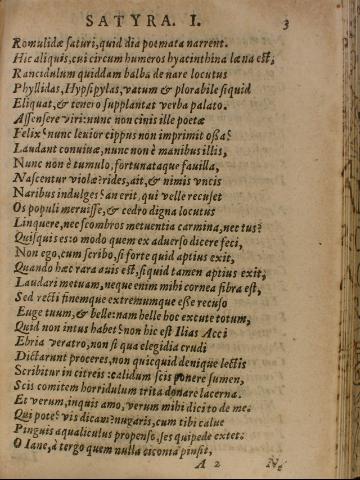 SATYRA. I. 3
Romulidæ saturi, quid dia poemata narrent.
Hic aliquis, cui circum humeros hyacinthina læna est,
Rancidulum quiddam balba de nare locutus
Phyllidas, Hypsipylas, vatum & plorabile siquid
Eliquat, & tenero supplantat verba palato.
Assensere viri: nunc non cinis ille poetæ
Felix? nunc leuior cippus non imprimit ossa?
Laudant conuiuæ, nunc non è manibus illis,
Nunc non è tumulo, fortunataque fauilla,
Nascentur violæ? rides, ait, & nimis vncis
Naribus indulges? an erit, qui velle recuset
Os populi meruisse, & cedro digna locutus
Linquere, nec scombros metuentia carmina, nec tus?
Quisquis es to modo quem ex aduerso dicere feci,
Non ego, cum scribo, si forte quid aptius exit,
Quando hæc rara auis est, si quid tamen aptius exit,
Laudari metuam, neque enim mihi cornea fibra est,
Sed recti finemque extremumque esse recuso
Euge tuum, & belle: nam belle hoc excute totum,
Quid non intus habet? non hic est Ilias Acci
Ebria veratro, non si qua elegidia crudi
Dictarunt proceres, non quicquid denique lectis
Scribitur in citreis: calidum scis ponere sumen,
Scis comitem horridulum trita donare lacerna.
Et verum, inquis amo, verum mihi dicito de me.
Qui pote? vis dicam? nugaris, cum tibi calue
Pinguis aqualiculus propenso, ses quipede extet.
O Iane, à tergo quem nulla ciconia pinsit,
A 2 Ne